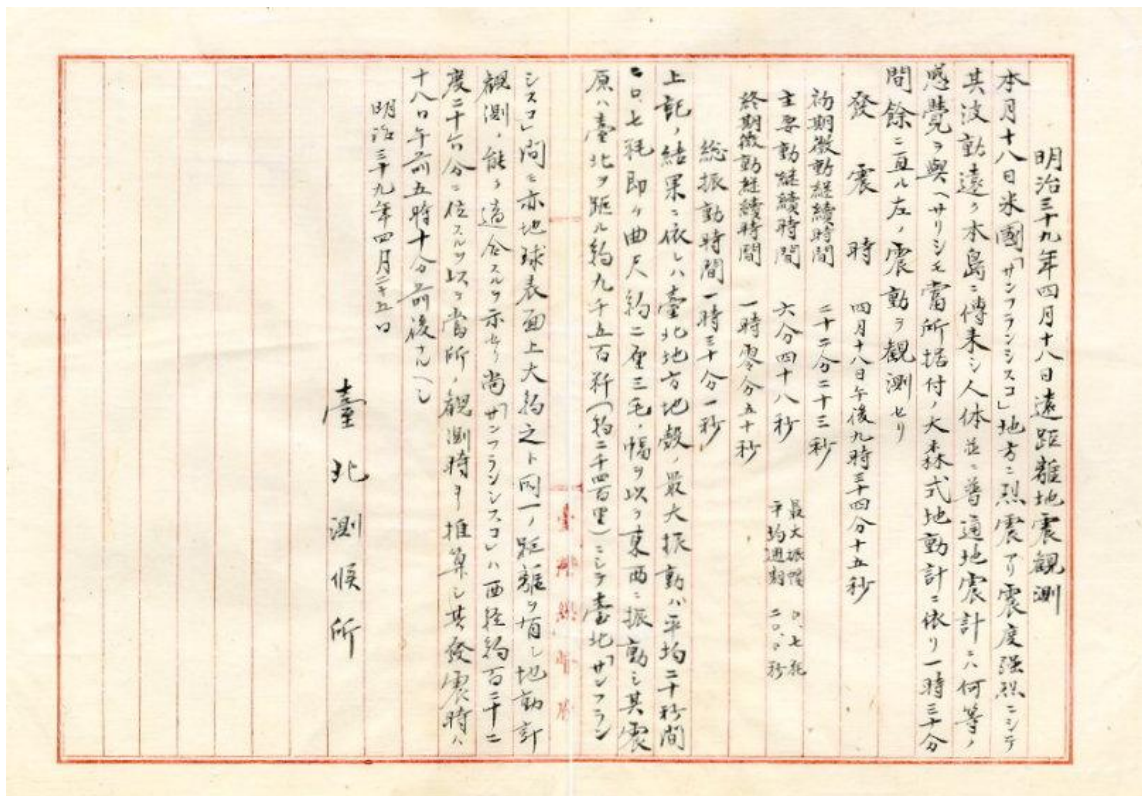 明治三十九年四月十八日遠距離地震観測
本月十八日米國「サンフランシスコ」地方ニ烈震アリ震度強烈ニシテ
其波動遠ク本島ニ傳来シ人体並ニ普通地震計ニハ何等ノ
感覺ヲ與ヘサリシモ當所据付ノ大森式地動計ニ依リ一時三十分
間餘ニ亘ル左ノ震動ヲ観測セリ
發震時 四月十八日午後九時三十四分十五秒
初期微動継続時間 二十二分二十三秒
主要動継續時間 六分四十八秒 最大振幅 〇、七粍 平均週期 二〇、〇秒
終期微動継續時間 一時零分五十秒
総振動時間 一時三十分一秒
上記ノ結果ニ依レハ臺北地方地殻ノ最大振動ハ平均二十秒間
ニ〇、七粍即ケ曲尺約二厘三毛ノ幅ヲ以テ東西ニ振動シ其震
原ハ臺北ヲ距ル約九千五百粁(約二千四百里)ニシテ臺北「サンフラン
シスコ」間モ亦地球表面上大約之ト同一ノ距離ヲ有シ地動計
観測ノ能ク適合スルヲ示セリ尚「サンフランシスコ」ハ西径約百二十二
度二十六分ニ位スルヲ以テ當所ノ観測時ヨリ推算シ其發震時ハ
十八日午前五時十分前後ナルヘシ
明治三十九年四月二十五日
臺北測候所
臺灣總督府